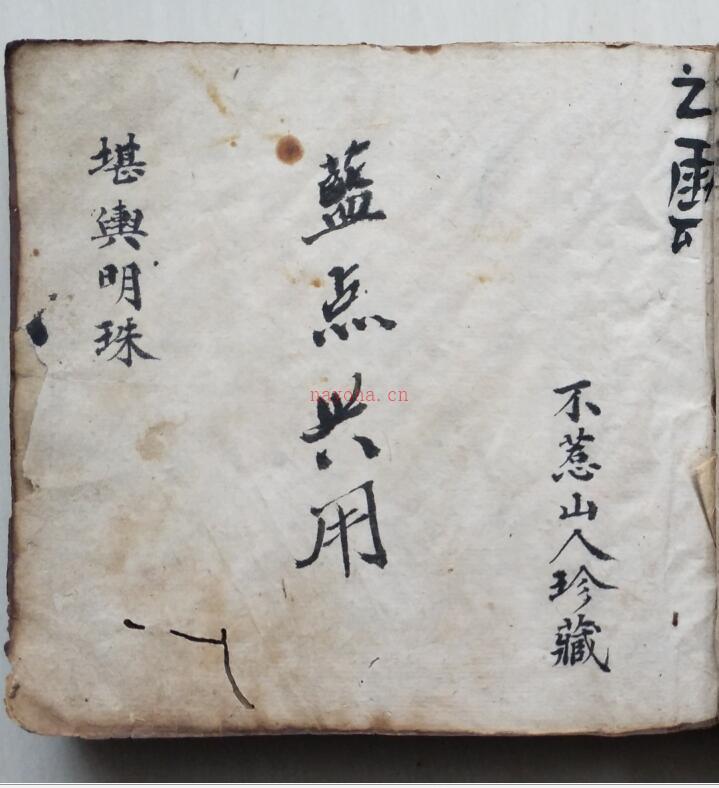 之雲
不惹山人珍藏
藍点共用
堪輿明珠
nayona.cn